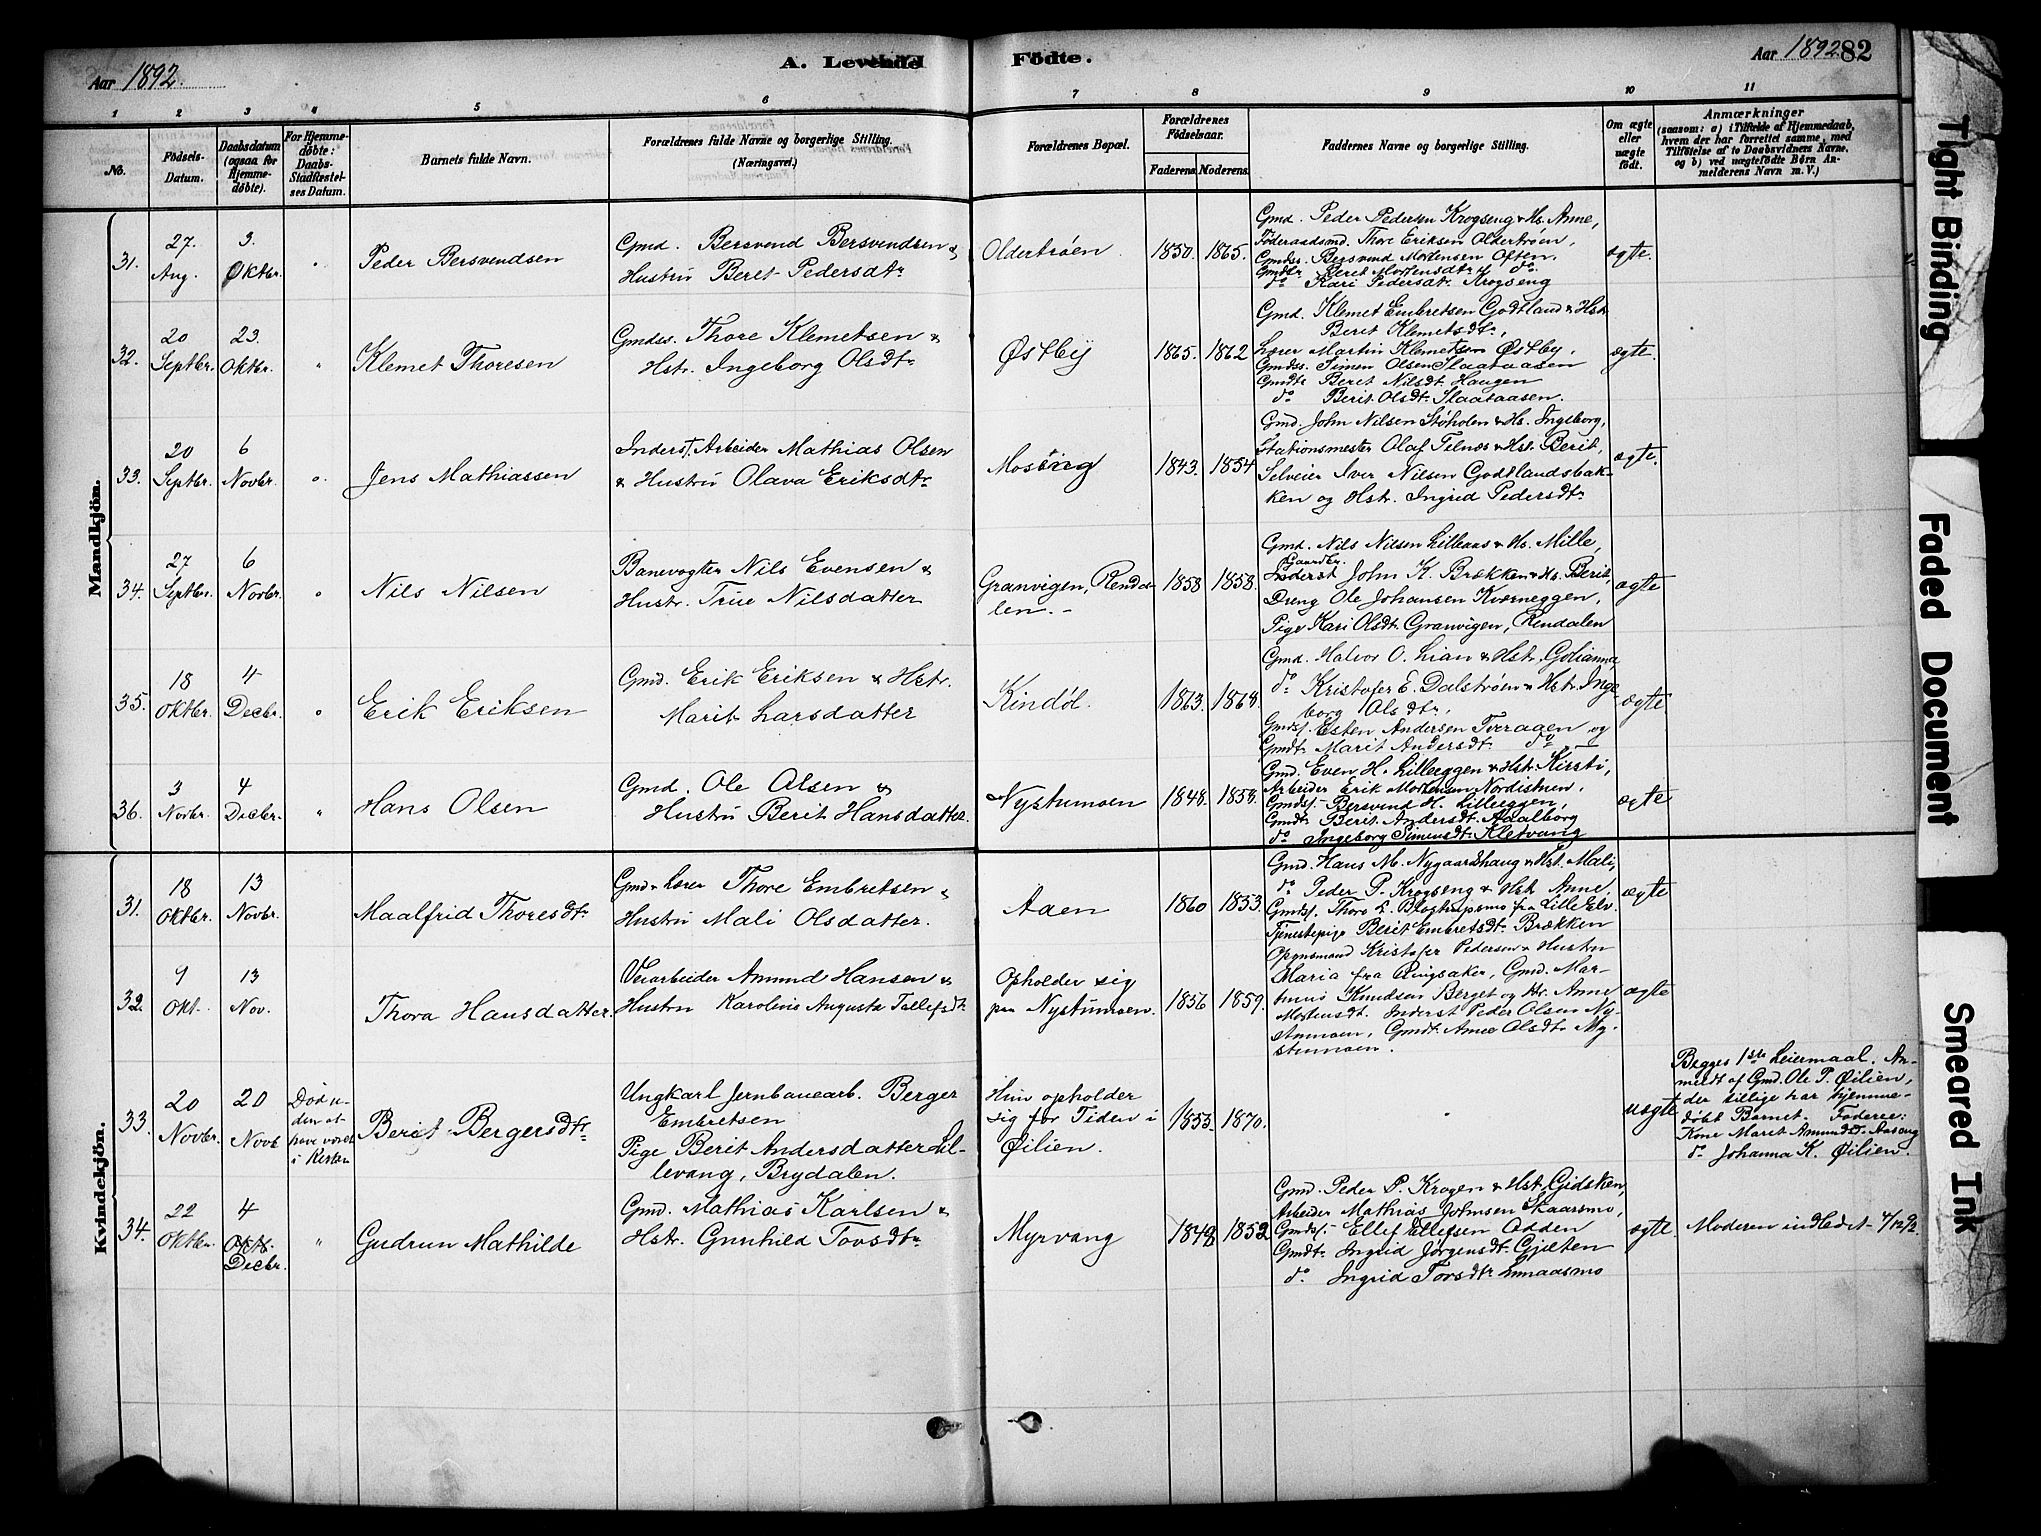 Aar 1892.
A. Levende
Födte.
Aar 1892
82
1 2 3 4 5 6 7 8 9 10 11
No.
Födsels-
Datum.
Daabsdatum
(ogsaa for
Hjemme-
döbte).
For Hjemme-
döbte:
Daabs-
Stadfæstel-
ses Datum.
Barnets fulde Navn.
Forældrenes fulde Navne og borgerlige Stilling.
(Næringsvei.)
Forældrenes Bopæl.
Forældrenes
Födselsaar.
Faderens. Moderens.
Faddernes Navne og borgerlige Stilling.
Om ægte
eller
uægte
födt.
Anmærkninger
(saasom: a) i Tilfælde af Hjemmedaab,
hvem der har forrettet samme, med
Tilföielse af to Daabsvidners Navne.
og b) ved uægtefödte Börn An-
melderens Navn m. V.)
Mandkjön.
31.
27.
Aug.
3.
Oktbr.
"
Peder Bersvendsen
Gmd. Bersvend Bersvendsen &
Hustru Beret Pedersdtr
Oldertrøen
1850. 1865.
Gmd. Peder Pedersen Krogseng & Hs. Anne,
Föderaadsmd. Thore Eriksen Oldertrøen,
Gmdss. Bersvend Mortensen Often.
Gmdtr Beret Mortensdtr do
do Kari Pedersdtr Krogseng
ægte.
32.
20
Septbr.
23.
Oktbr.
"
Klemet Thoresen
Gmdes. Thore Klemetsen &
Hstr. Ingeborg Olsdtr
Østby
1865. 1862
Gmd. Klemet Embretsen Godtland & Hstr
Berit Klemetsdtr,
Lærer Martin Klemetsen Østby.
Gmdss. Simen Olsen Slaataasen
Gmdtr Beret Nilsdtr Haugen
do Berit Olsdtr Slaataasen.
ægte.
33.
20
Septbr.
6
Novbr.
"
Jens Mathiassen
Inderst, Arbeider Mathias Olsen
& Hustru Olava Eriksdtr
Moseng
1843. 1854
Gmd. John Nilsen Støholen & Hs. Ingeborg,
Stationsmester Olaf Telnæs & Hstr. Berit,
Selveier Iver Nilsen Godtlandsbak-
ken og Hstr. Ingrid Pedersdtr
ægte.
34.
27
Septbr.
6
Novbr.
"
Nils Nilsen
Banevogter Nils Evensen &
Hustr. True Nilsdatter
Granvigen, Renda-
len. -
1858 1858.
Gmd. Nils Nilsen Lilleaas & Hs. Mille,
Gaardbr.
Inderst John K. Brækken & Hs. Berit,
Dreng Ole Johansen Kværneggen,
Pige Kari Olsdtr Granvigen, Rendalen
ægte
35.
18
Oktbr.
4
Decbr.
"
Erik Eriksen
Gmd. Erik Eriksen & Hstr.
Marit Larsdatter
Kindøl.
1863. 1868.
Gmd. Halvor O. Lian & Hstr. Golianna,
do Kristofer E. Dalstrøm & Hstr. Inge-
borg Olsdtr,
Gmdss. Esten Andersen Tveragen og
Gmdtr Marit Andersdtr do
ægte
36.
3
Novbr.
4
Decbr.
"
Hans Olsen
Gmd. Ole Olsen &
Hustru Berit Hansdatter.
Nystumoen
1848. 1858.
Gmd. Even H. Lilleeggen & Hstr. Kirsti,
Arbeider Erik Mortensen Nordistuen,
Gmdss. Bersvend H. Lilleeggen,
Gmdtr Berit Andersdtr Aaalborg
do Ingeborg Simensdtr Kletvang
ægte
Kvindekjön.
31.
18
Oktbr.
13
Novbr.
Maalfrid Thoresdtr
Gmd & Lærer Thore Embretsen &
Hustru Mali Olsdatter.
Aaen
1860 1853.
Gmd. Hans M. Nygaardshaug & Hst. Mali,
do Peder P. Krogseng & Hstr Anne.
Gmdss. Thore L. fra Lille Elv.
Tjenestepige Berit Embretsdtr Brækken
ægte
32.
9
Okt.
13
Nov.
Thora Hansdatter.
Veiarbeider Amund Hansen &
Hustru Karolius Augusta Tollefsdtr
Opholder sig
paa Nystumoen.
1856 1859.
Opsynsmand Kristofer Pedersen & Hustru
Maria fra Ringsaker, Gmd. Mar-
tinus Knudsen Berget og Hstr. Anne
Mortensdtr. Inderst Peder Olsen Ny-
stumoen, Gmdtr Anne Olsdtr Ny-
stumoen.
ægte
33.
20
Novbr.
20
Novbr
Død u-
den at
have været
i Kirken
Berit Bergersdtr
Ungkarl Jernbanearb. Berger
Embretsen
Pige Berit Andersdatter Lil-
levang, Brydalen.
Hun opholder
sig for Tiden i
Øilien.
1853. 1870.
"
uægte
Begges 1ste Leiermaal. An-
meldt af Gmd. Ole P. Øilien,
der tillige har hjemme-
døbt Barnet. Faddere:
Kone Marit Amundsd. Aaseng
do Johanna K. Øilien.
34.
22
Oktbr.
4
Oktb.
Decbr.
"
Gudrun Mathilde
Gmd. Mathias Karlsen &
Hstr. Gunhild Tovsdtr
Myrvang
1848 1852
Gmd. Peder P. Krogen & Hst. Gidsken,
Arbeider Mathias Johnsen Skaarsmo,
Gmdss. Ellef Ellefsen Odden
Gmdtr Ingrid Jørgensdtr Gjelten
do Ingrid Torsdtr Lunaasmo
ægte.
Moderen indledet 4/12 92.
Tight Binding
Faded Document
Smeared Ink